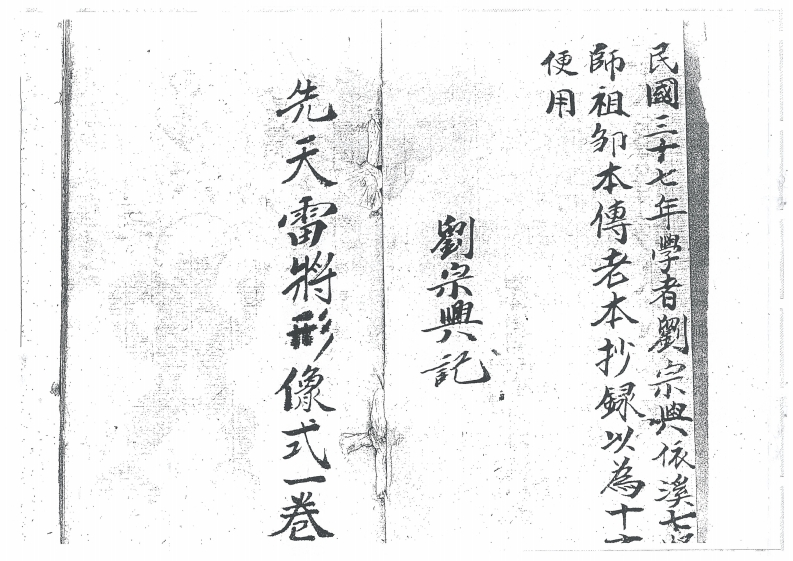 民國三十七年學者劉宗興依溪七
師祖邹本傳老本抄録以為十方
便用
劉宗興記
先天雷將形像式一卷